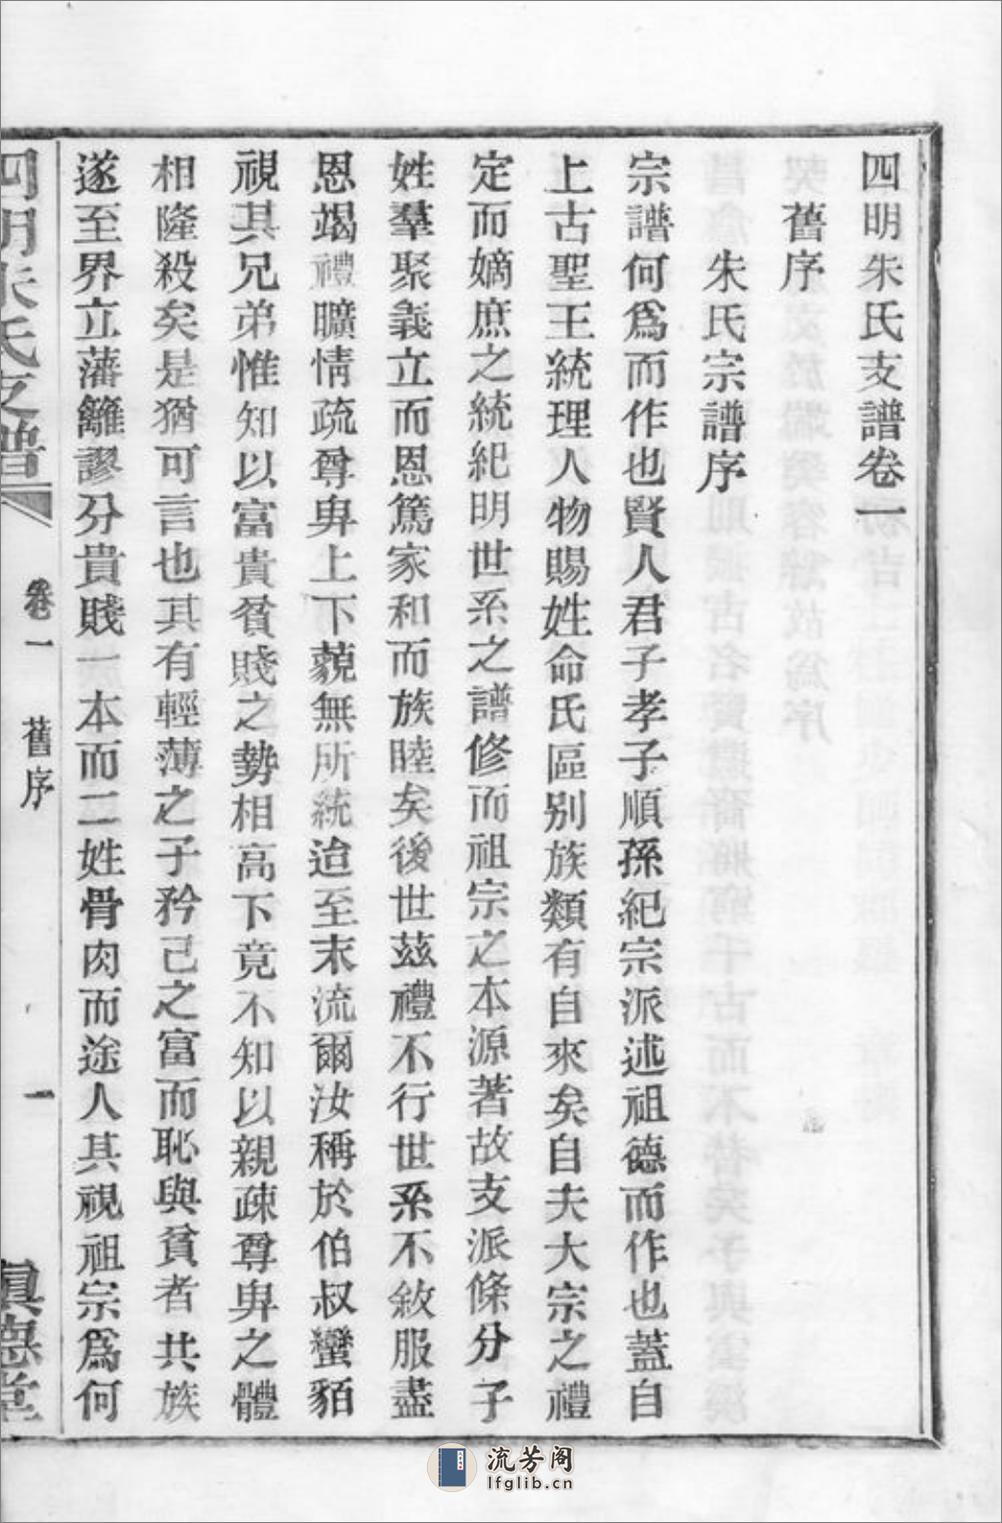 四明朱氏支譜卷一
舊序
朱氏宗譜序
宗譜何爲而作也賢人君子孝子順孫紀宗派述祖德而作也蓋自
上古聖王統理人物賜姓命氏區别族類有自來矣自夫大宗之禮
定而嫡庶之統紀明世系之譜修而祖宗之本源著故支派條分子
姓羣聚義立而恩篤家和而族睦矣後世茲禮不行世系不敘服盡
恩竭禮曠情疏尊卑上下藐無所統迨至末流爾汝稱於伯叔蠻貊
視其兄弟惟知以富貴貧賤之勢相高下竟不知以親疎尊卑之體
相隆殺矣是猶可言也其有輕薄之子矜己之富而恥與貧者共族
遂至界立藩籬謬分貴賤一本而二姓骨肉而途人其視祖宗爲何
四明朱氏支譜
卷一
舊序
一
眞悳堂
流芳阁
lfglib.cn